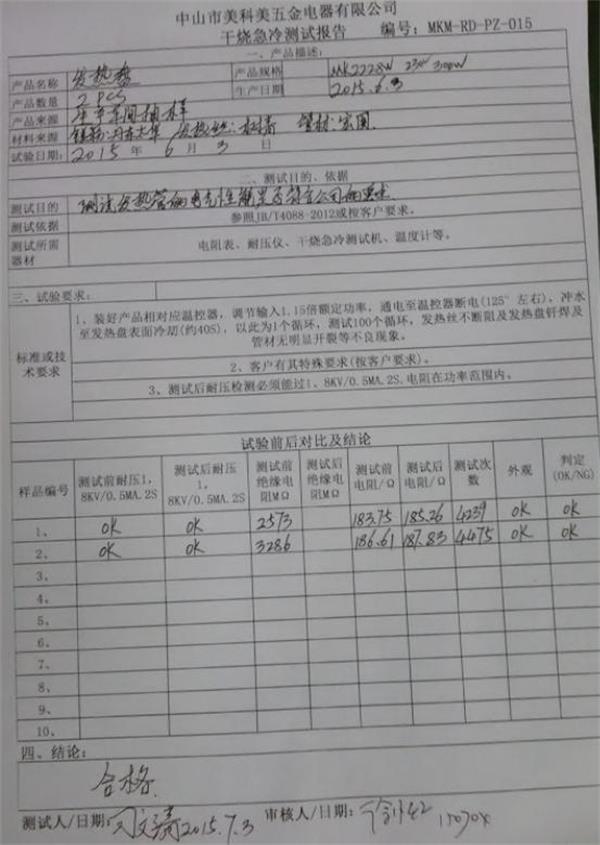 中山市美科美五金电器有限公司
干烧急冷测试报告 编号:MKM-RD-PZ-015
一、产品描述:
产品名称 发热盘 产品规格 MK2228W
产品数量 2 PCS 生产日期 2015.6.3
产品来源 生产车间抽样
材料来源
试验日期: 2015 年 6 月 3 日
二、测试目的、依据
测试目的 测试发热管的电气性能是否符合公司的要求
测试依据 参照JB/T4088-2012或按客户要求。
测试所需器材 电阻表、耐压仪、干烧急冷测试机、温度计等。
三、试验要求:
标准或技术要求
1、装好产品相对应温控器,调节输入1.15倍额定功率,通电至温控器断电(125°左右),冲水
至发热盘表面冷却(约40S),以此为1个循环,测试100个循环,发热丝不断阻及发热盘钎焊及
管材无明显开裂等不良现象。
2、客户有其特殊要求(按客户要求)。
3、测试后耐压检测必须能过1、8KV/0.5MA.2S.电阻在功率范围内。
试验前后对比及结论
样品编号 测试前耐压1,8KV/0.5MA.2S 测试后耐压1,8KV/0.5MA.2S 测试前绝缘电阻MΩ 测试后绝缘电阻MΩ 测试前电阻/Ω 测试后电阻/Ω 测试次数 外观 判定(OK/NG)
1、 OK OK 2573 183.75 185.26 4239 OK OK
2、 OK OK 3286 186.61 187.83 4475 OK OK
3、
4、
5、
6、
7、
8、
9、
10、
四、结论:
合格
测试人/日期: 2015.7.3 审核人/日期: